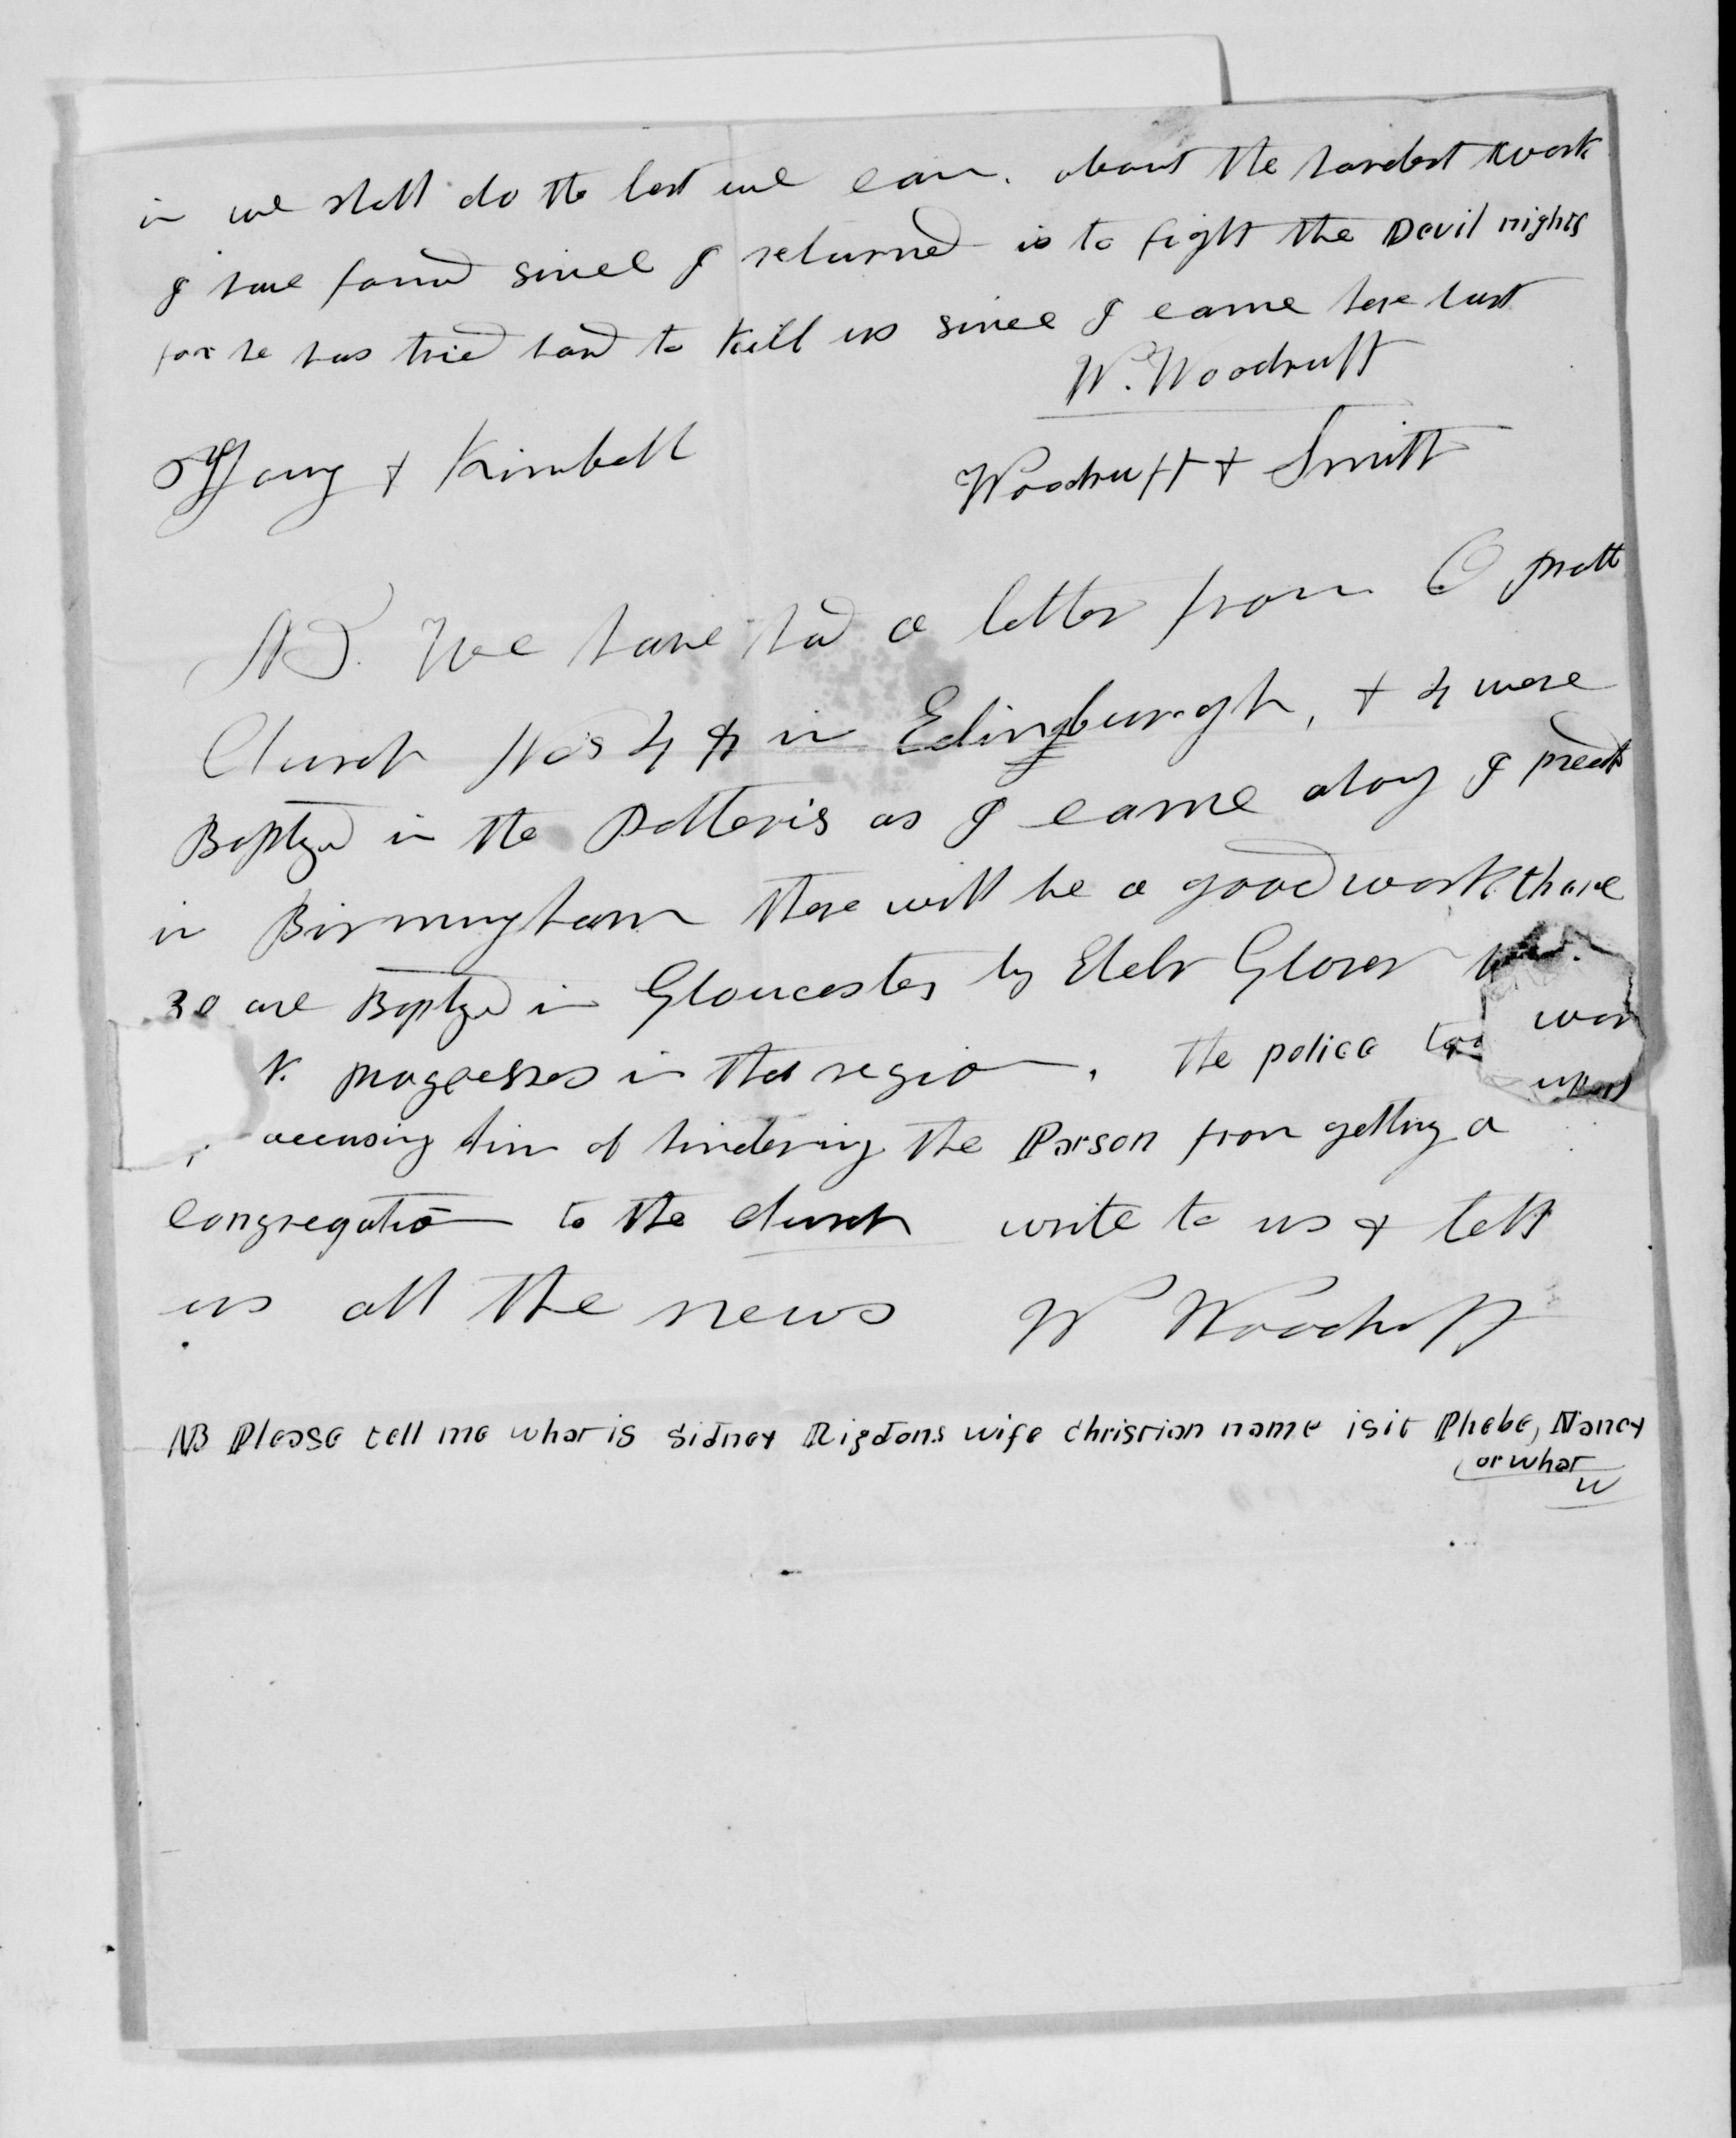 in we shall do the best we can. about the hardest work
I have found since I returned is to fight the Devil nights
for he has tried hard to kill us since I came here last
W. Woodruff
Young & Kimball
Woodruff & Smith
NB. We have had a letter from O pratt
Church Nos 44 in Edingburgh, & 4 were
Baptzd in the Potteris as I came along I preach
in Birmingham there will be a good work there
30 are Baptzd in Gloucester by Eldr Glover
wor
k progresses in that region. the police
up
accusing him of hindering the Parson from getting a
congregation to the church write to us & tell
us all the news W Woodruff
NB Please tell me what is Sidney Rigdons wife christian name is it Phebe, Nancy
or what
W